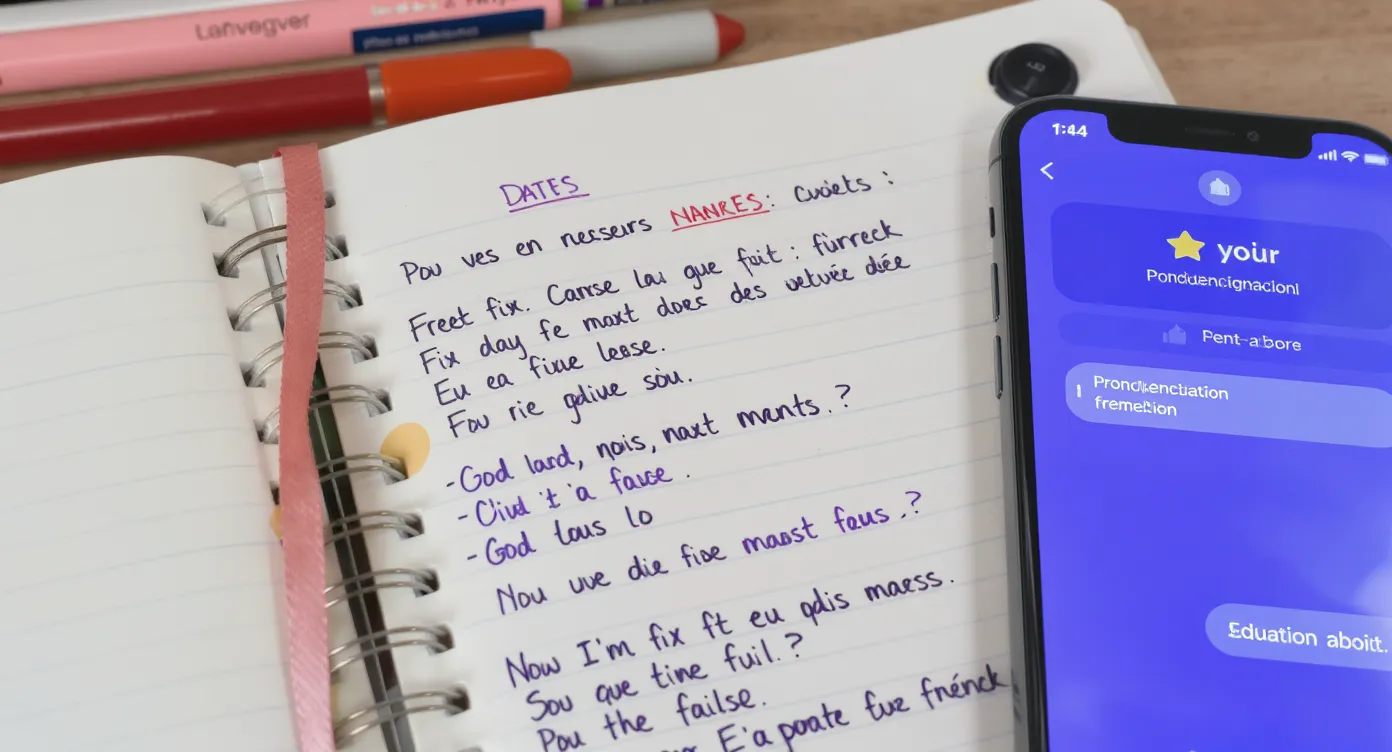 Lanvegver
DATES
Pou ves en nerseurs NANRES: cuoiets :
Freet fix. Canse lau gue fait : fürreck
Fix day fe maxt does des vetvée diée
Eu ea fiue lease.
Fou rie gdive sou.
-God lard, nois, naxt mants.?
-Ciud 't 'a fause.
-God tous lo
Nou uve die fise maost faus.?
Now I'm fix ft eu qdis maess.
Sou que tine fuil.?
Pou the failse.
E'a poate fuz frénck
1:44
your
Pent-abore
Eduation aboit.